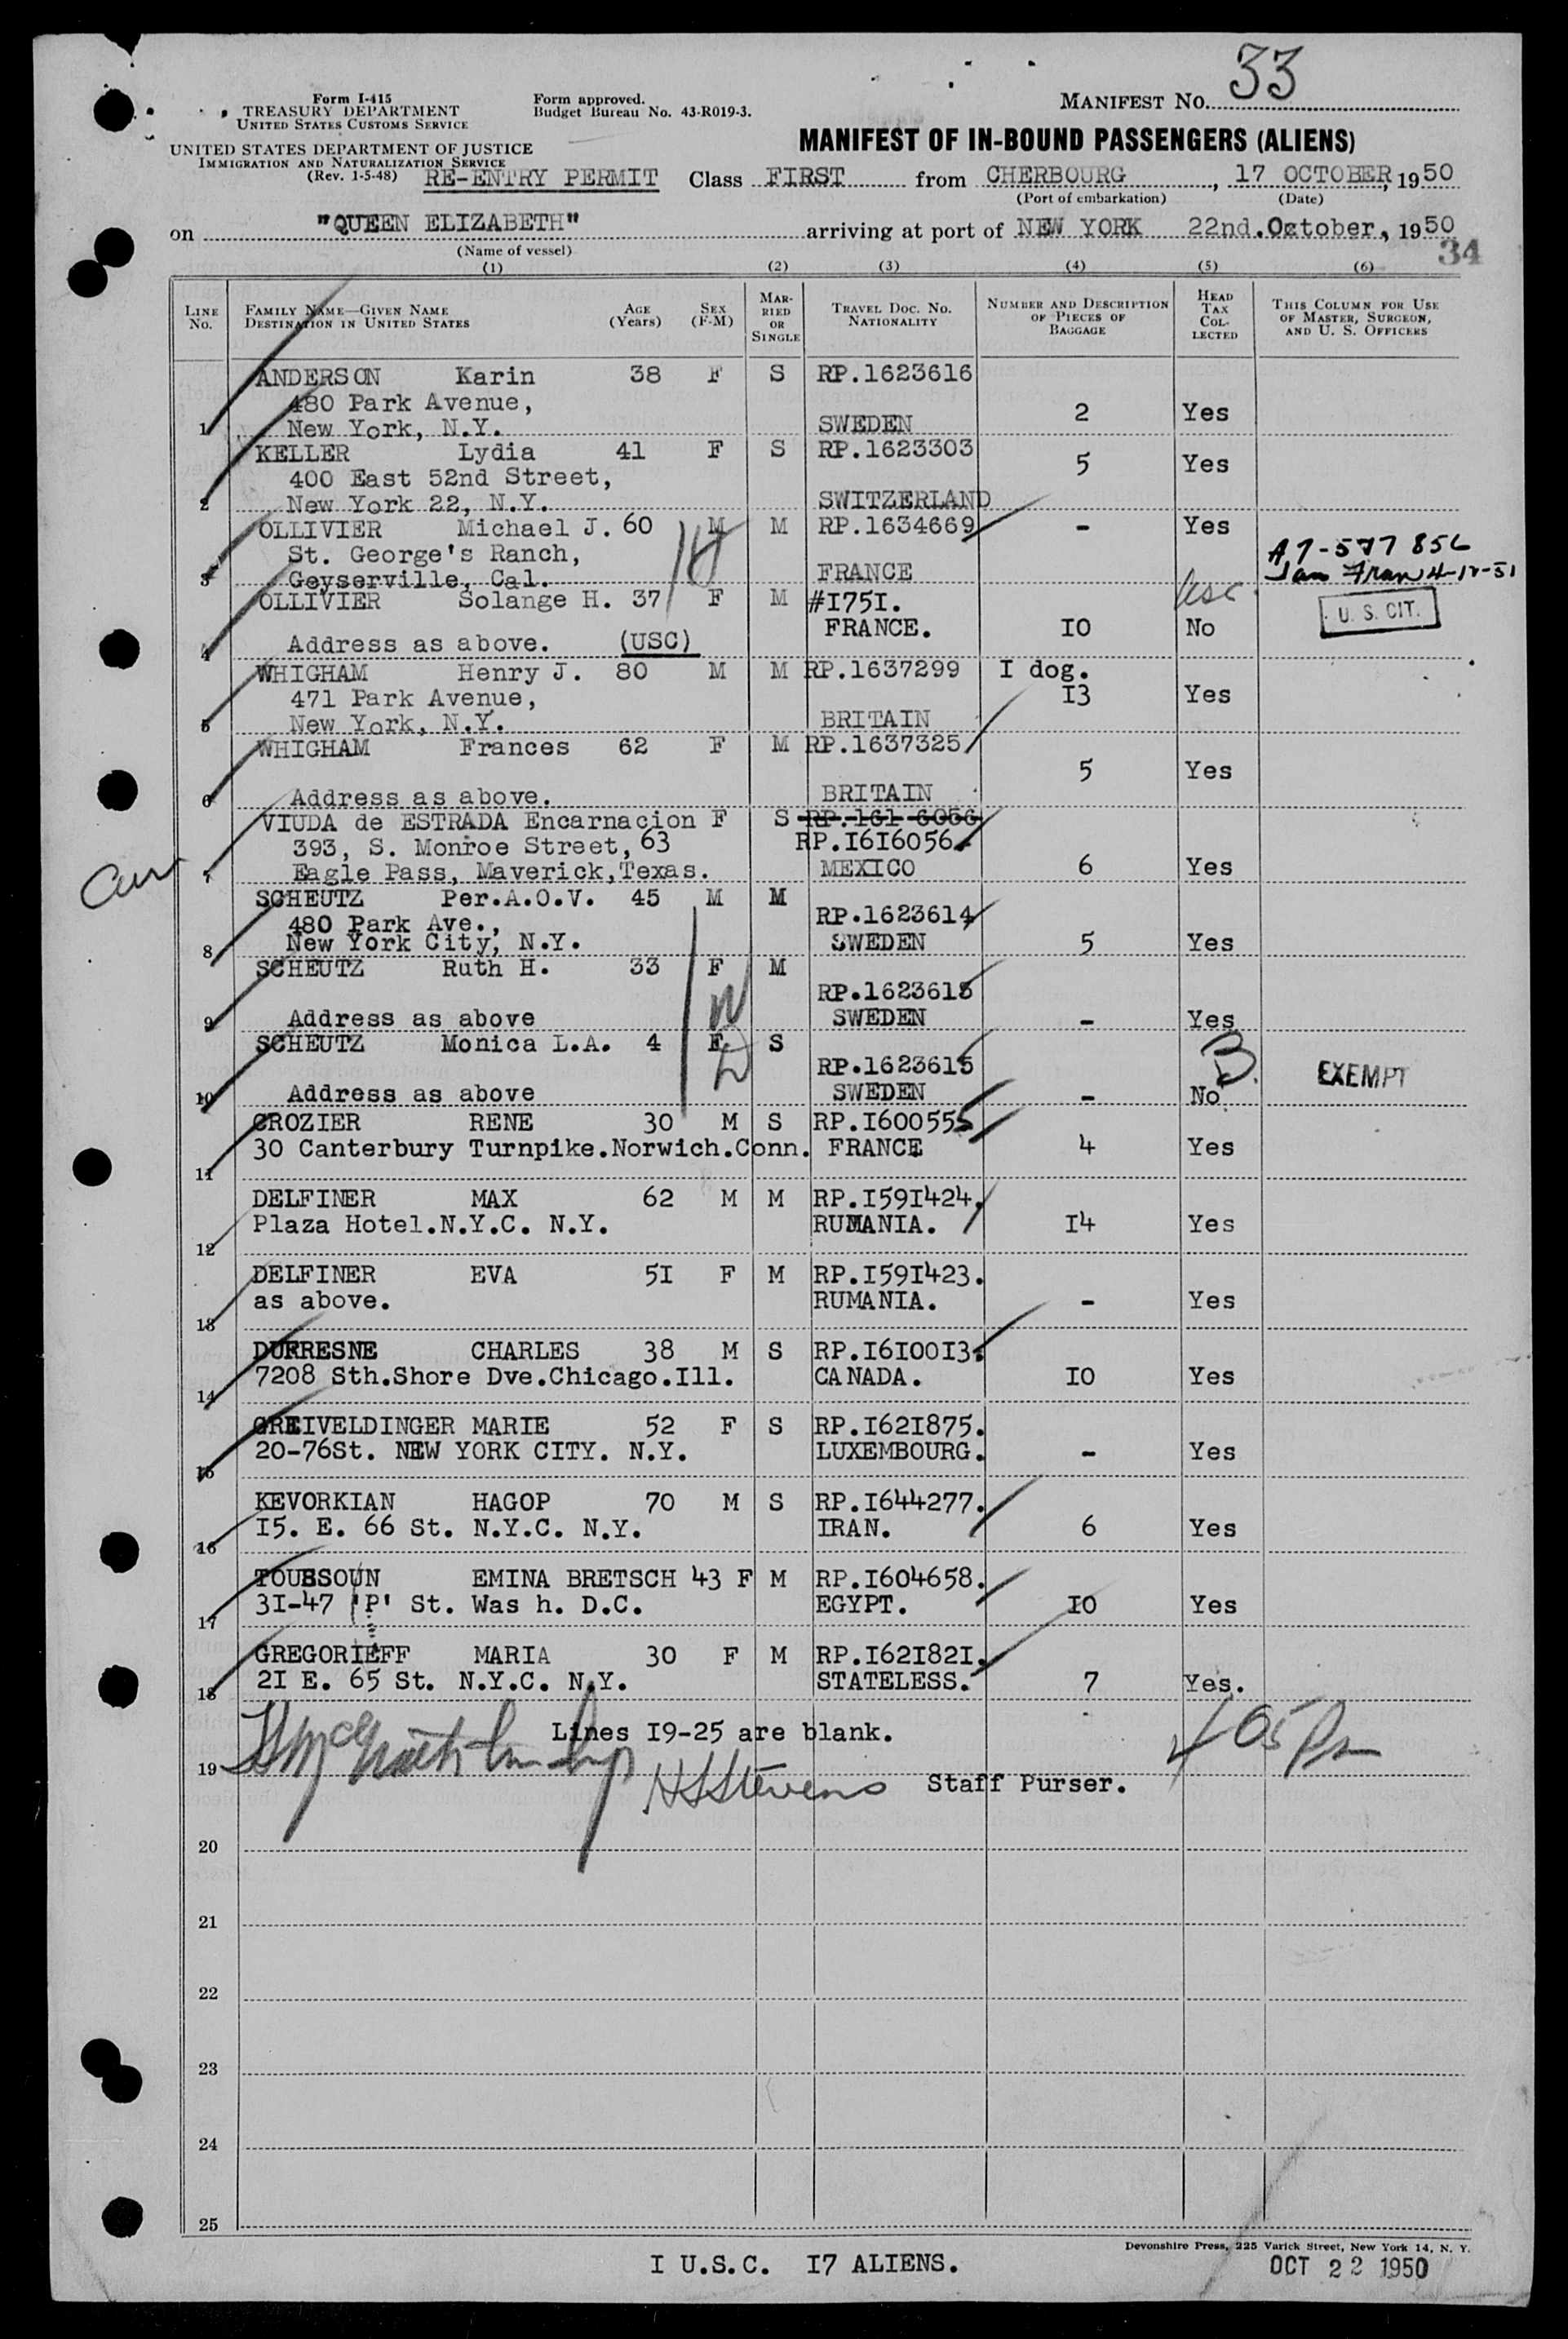 33
Form I-415
TREASURY DEPARTMENT
UNITED STATES CUSTOMS SERVICE
Form approved.
Budget Bureau No. 43-R019-3.
MANIFEST NO.
UNITED STATES DEPARTMENT OF JUSTICE
IMMIGRATION AND NATURALIZATION SERVICE
(Rev. 1-5-48)
MANIFEST OF IN-BOUND PASSENGERS (ALIENS)
RE-ENTRY PERMIT Class FIRST from CHERBOURG, 17 OCTOBER, 1950
(Port of embarkation) (Date)
on "QUEEN ELIZABETH" arriving at port of NEW YORK 22nd.October, 1950
(Name of vessel)
34
(1) (2) (3) (4) (5) (6)
LINE No. FAMILY NAME—GIVEN NAME DESTINATION IN UNITED STATES AGE (Years) SEX (F-M) MARRIED OR SINGLE TRAVEL DOC. NO. NATIONALITY NUMBER AND DESCRIPTION OF PIECES OF BAGGAGE HEAD TAX COLLECTED THIS COLUMN FOR USE OF MASTER, SURGEON, AND U. S. OFFICERS
ANDERSON Karin 38 F S RP.1623616
480 Park Avenue, 2 Yes
1 New York, N.Y. SWEDEN
KELLER Lydia 41 F S RP.1623303
400 East 52nd Street, 5 Yes
2 New York 22, N.Y. SWITZERLAND
OLLIVIER Michael J. 60 M M RP.1634669 - Yes
St. George's Ranch, A7-577 856
3 Geyserville, Cal. FRANCE San Fran 4-12-51
OLLIVIER Solange H. 37 F M #I75I. usc
FRANCE. IO No U. S. CIT.
4 Address as above. (USC)
WHIGHAM Henry J. 80 M M RP.1637299 I dog.
471 Park Avenue, I3 Yes
5 New York, N.Y. BRITAIN
WHIGHAM Frances 62 F M RP.1637325
5 Yes
6 Address as above. BRITAIN
VIUDA de ESTRADA Encarnacion F S RP.161 6056
393, S. Monroe Street, 63 RP.I6I6056
7 Eagle Pass, Maverick,Texas. MEXICO 6 Yes
SCHEUTZ Per.A.O.V. 45 M M
480 Park Ave., RP.1623614
8 New York City, N.Y. SWEDEN 5 Yes
SCHEUTZ Ruth H. 33 F M
RP.1623615
9 Address as above SWEDEN - Yes
SCHEUTZ Monica L.A. 4 F S
RP.1623615 EXEMPT
10 Address as above SWEDEN - No
CROZIER RENE 30 M S RP.I600555
30 Canterbury Turnpike.Norwich.Conn. FRANCE 4 Yes
11
DELFINER MAX 62 M M RP.I59I424.
Plaza Hotel.N.Y.C. N.Y. RUMANIA. I4 Yes
12
DELFINER EVA 5I F M RP.I59I423.
as above. RUMANIA. - Yes
13
DUFRESNE CHARLES 38 M S RP.I6I00I3.
7208 Sth.Shore Dve.Chicago.Ill. CANADA. IO Yes
14
GREIVELDINGER MARIE 52 F S RP.I62I875.
20-76St. NEW YORK CITY. N.Y. LUXEMBOURG. - Yes
15
KEVORKIAN HAGOP 70 M S RP.I644277.
I5. E. 66 St. N.Y.C. N.Y. IRAN. 6 Yes
16
TOUSSOUN EMINA BRETSCH 43 F M RP.I604658.
3I-47 'P' St. Was h. D.C. EGYPT. IO Yes
17
GREGORIEFF MARIA 30 F M RP.I62I82I.
2I E. 65 St. N.Y.C. N.Y. STATELESS. 7 Yes.
18
Lines I9-25 are blank. 4 05 Pm
19
HSStevens Staff Purser.
20
21
22
23
24
25
Devonshire Press, 225 Varick Street, New York 14, N. Y.
I U.S.C. I7 ALIENS. OCT 22 1950